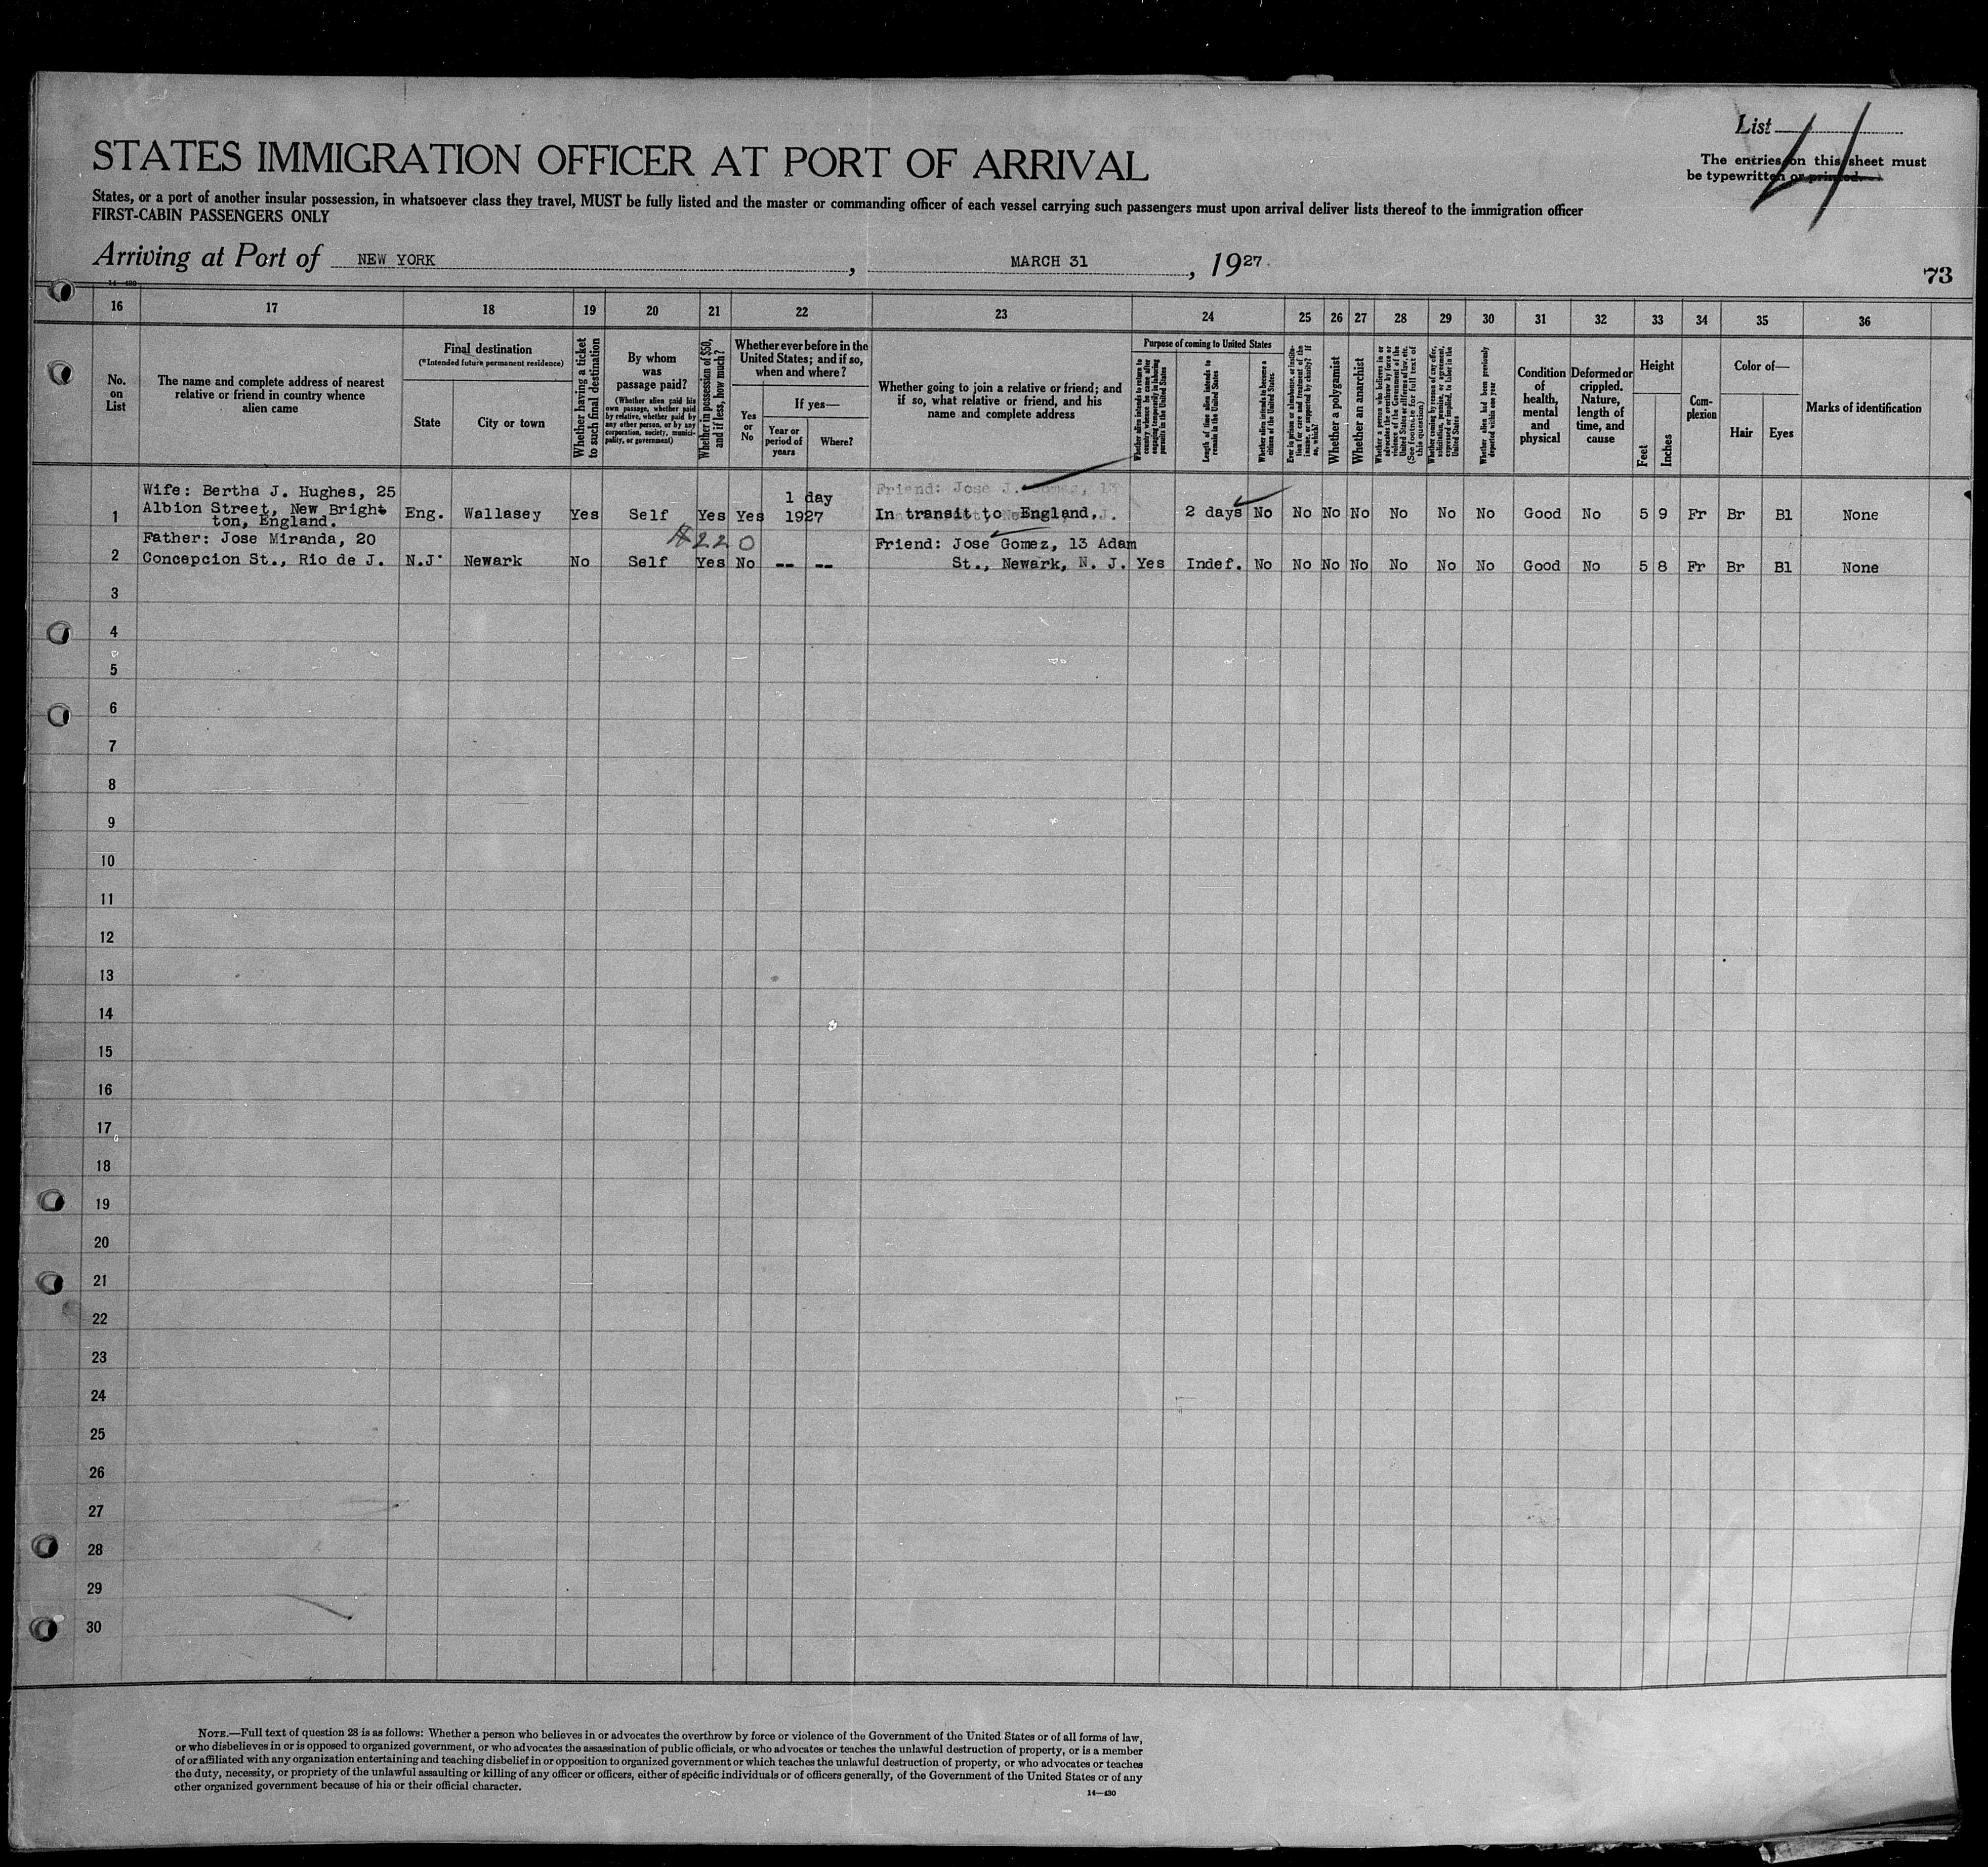 List 4
The entries on this sheet must
be typewritten or printed.
STATES IMMIGRATION OFFICER AT PORT OF ARRIVAL
States, or a port of another insular possession, in whatsoever class they travel, MUST be fully listed and the master or commanding officer of each vessel carrying such passengers must upon arrival deliver lists thereof to the immigration officer
FIRST-CABIN PASSENGERS ONLY
Arriving at Port of NEW YORK, MARCH 31, 1927.
73
14—430
16 17 18 19 20 21 22 23 24 25 26 27 28 29 30 31 32 33 34 35 36
No.
on
List
The name and complete address of nearest
relative or friend in country whence
alien came
Final destination
(*Intended future permanent residence)
State
City or town
Whether having a ticket
to such final destination
By whom
was
passage paid?
(Whether alien paid his
own passage, whether paid
by relative, whether paid by
any other person, or by any
corporation, society, munici-
pality, or government)
Whether in possession of $50,
and if less, how much?
Whether ever before in the
United States; and if so,
when and where?
Yes
or
No
If yes—
Year or
period of
years
Where?
Whether going to join a relative or friend; and
if so, what relative or friend, and his
name and complete address
Purpose of coming to United States
Whether alien intends to return to
country whence he came after
engaging temporarily in laboring
pursuits in the United States
Length of time alien intends to
remain in the United States
Whether alien intends to become a
citizen of the United States
Ever in prison or almshouse, or institu-
tion for care and treatment of the
insane, or supported by charity? If
so, which?
Whether a polygamist
Whether an anarchist
Whether a person who believes in or
advocates the overthrow by force or
violence of the Government of the
United States or all forms of law, etc.
(See footnote for full text of
this question)
Whether coming by reason of any offer,
solicitation, promise, or agreement,
expressed or implied, to labor in the
United States
Whether alien had been previously
deported within one year
Condition
of
health,
mental
and
physical
Deformed or
crippled.
Nature,
length of
time, and
cause
Height
Feet
Inches
Com-
plexion
Color of—
Hair
Eyes
Marks of identification
Wife: Bertha J. Hughes, 25 1 day Friend: Jose J. Gomez, 13
1 Albion Street, New Bright Eng. Wallasey Yes Self Yes Yes 1927 In transit to England. 2 days No No No No No No No Good No 5 9 Fr Br Bl None
ton, England.
Father: Jose Miranda, 20 $220 Friend: Jose Gomez, 13 Adam
2 Concepcion St., Rio de J. N.J. Newark No Self Yes No -- -- St., Newark, N. J. Yes Indef. No No No No No No No Good No 5 8 Fr Br Bl None
3
4
5
6
7
8
9
10
11
12
13
14
15
16
17
18
19
20
21
22
23
24
25
26
27
28
29
30
NOTE.—Full text of question 28 is as follows: Whether a person who believes in or advocates the overthrow by force or violence of the Government of the United States or of all forms of law,
or who disbelieves in or is opposed to organized government, or who advocates the assassination of public officials, or who advocates or teaches the unlawful destruction of property, or is a member
of or affiliated with any organization entertaining and teaching disbelief in or opposition to organized government or which teaches the unlawful destruction of property, or who advocates or teaches
the duty, necessity, or propriety of the unlawful assaulting or killing of any officer or officers, either of specific individuals or of officers generally, of the Government of the United States or of any
other organized government because of his or their official character.
14—430